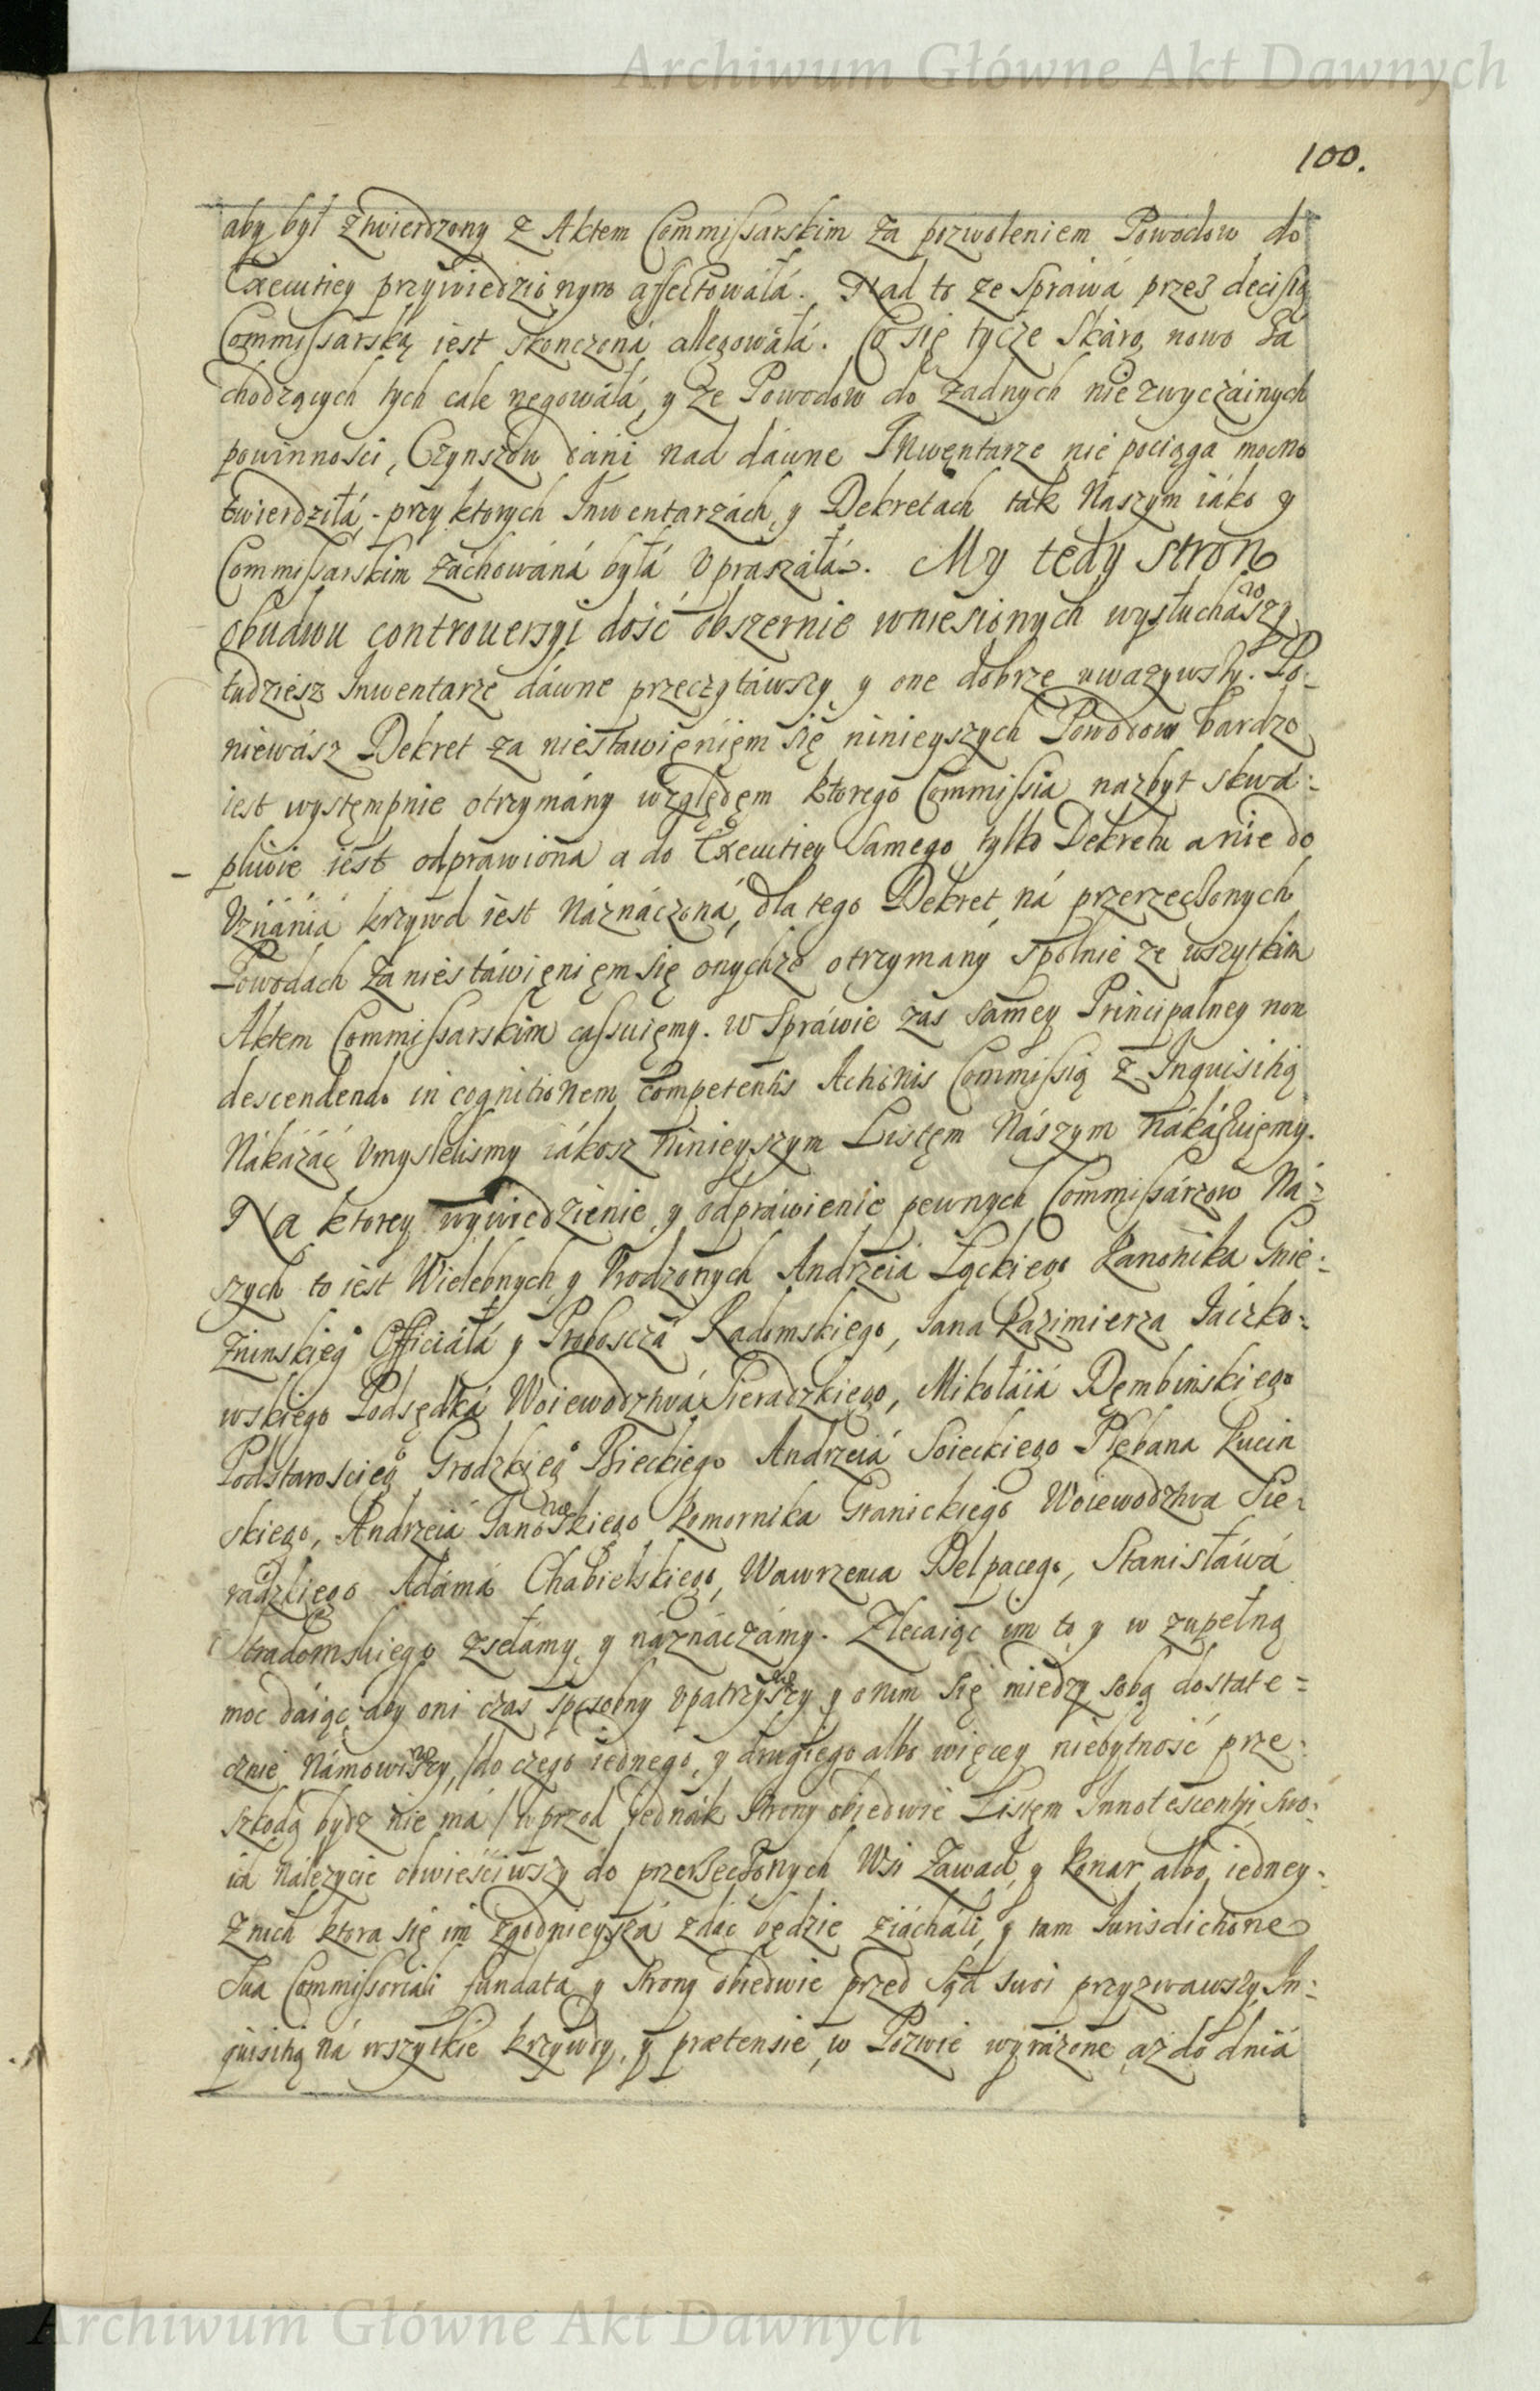 Archiwum Główne Akt Dawnych
100.
aby był ztwierdzony z Aktem Commissarskim za pozwoleniem Powodow do
Executiey przywiedzionym affectowałá. Nad to ze Spráwá przes decisią
Commissarską iest skonczoná allegowáłá. Co się tycze Skárg nowo Zá
chodzących tych cale negowáłá, y ze Powodow do zadnych niezwyczáinych
powinnosci, Czynszow dáni nad dáwne Inwęntarze nie pociąga mocno
twierdziłá - przy ktorych Inwentarzách, y Dekretach tak Naszym iáko y
Commissarskim záchowáná byłá Vpraszáłá. My tedy stron
obudwu controuersyi dość obszernie wniesionych wysłuchawszy
tudziesz Inwentarze dáwne przeczytáwszy y one dobrze uwazywszy. Po-
niewász Dekret za niestawięnięm się ninieyszych Powodow bardzo
iest występnie otrzymány względęm ktorego Commissia nazbyt skwa-
pliwie iest odprawiona a do Executiey Samego tylko Dekretu a nie do
Vznánia krzywd iest Náznáczoná, dla tego Dekret ná przerzeczonych
Powodach za niestáwięnięm się onychze otrzymány spolnie ze wszytkim
Aktem Commissarskim cassuięmy. W Spráwie zas samey Principalney non
descendendo in cognitionem competentis Actionis Commissią z Inquisitią
Nákázáć Vmyslelismy iákosz ninieyszym Listęm Nászym nákázuięmy.
Na ktorey wywiedzienie, y odpráwienie pewnych Commissárzow Ná-
szych to iest Wielebnych y Vrodzonych Andrzeia Łąckiego Kanonika Gnie-
zninskiego Officiáłá y Proboszczá Radomskiego, Iana Kazimierza Iaczko-
wskiego Podsędká Woiewodztwá Sieradzkiego, Mikołáiá Dęmbinskiego
Podstarosciego Grodzkiego Bieckiego Andrzeiá Soieckiego Plebana Kucin
skiego, Andrzeiá Janowskiego Komornika Granickiego Woiewodztwa Sie-
radzkiego Adámá Chabielskiego, Wawrzenca Delpacego, Stanisłáwá
Stradomskiego zsełámy y náznáczámy. Zlecaiąc im to y w zupełną
moc dáiąc, aby oni czas sposobny vpatrzywszy y onim się miedzy sobą dostate=
cznie Námowiwszy, /do czego iednego, y drugiego albo więcey niebytność prze-
szkodą bydz nie má/ wprzod iednák strony obiedwie Listęm Innotescentyi swo-
ich nálezycie obwieściwszy do przerzeczonych Wsi Zawad, y Konar albo iedney-
z nich ktora się im zgodnieyszá zdáć będzie ziácháli, y tam Iurisdictione
Sua Commissoriali fundata y strony obiedwie przed Sąd swoi przyzwawszy In-
quisitią ná wszytkie krzywdy, y prætensie, w Pozwie wyrázone az do dniá
Archiwum Główne Akt Dawnych